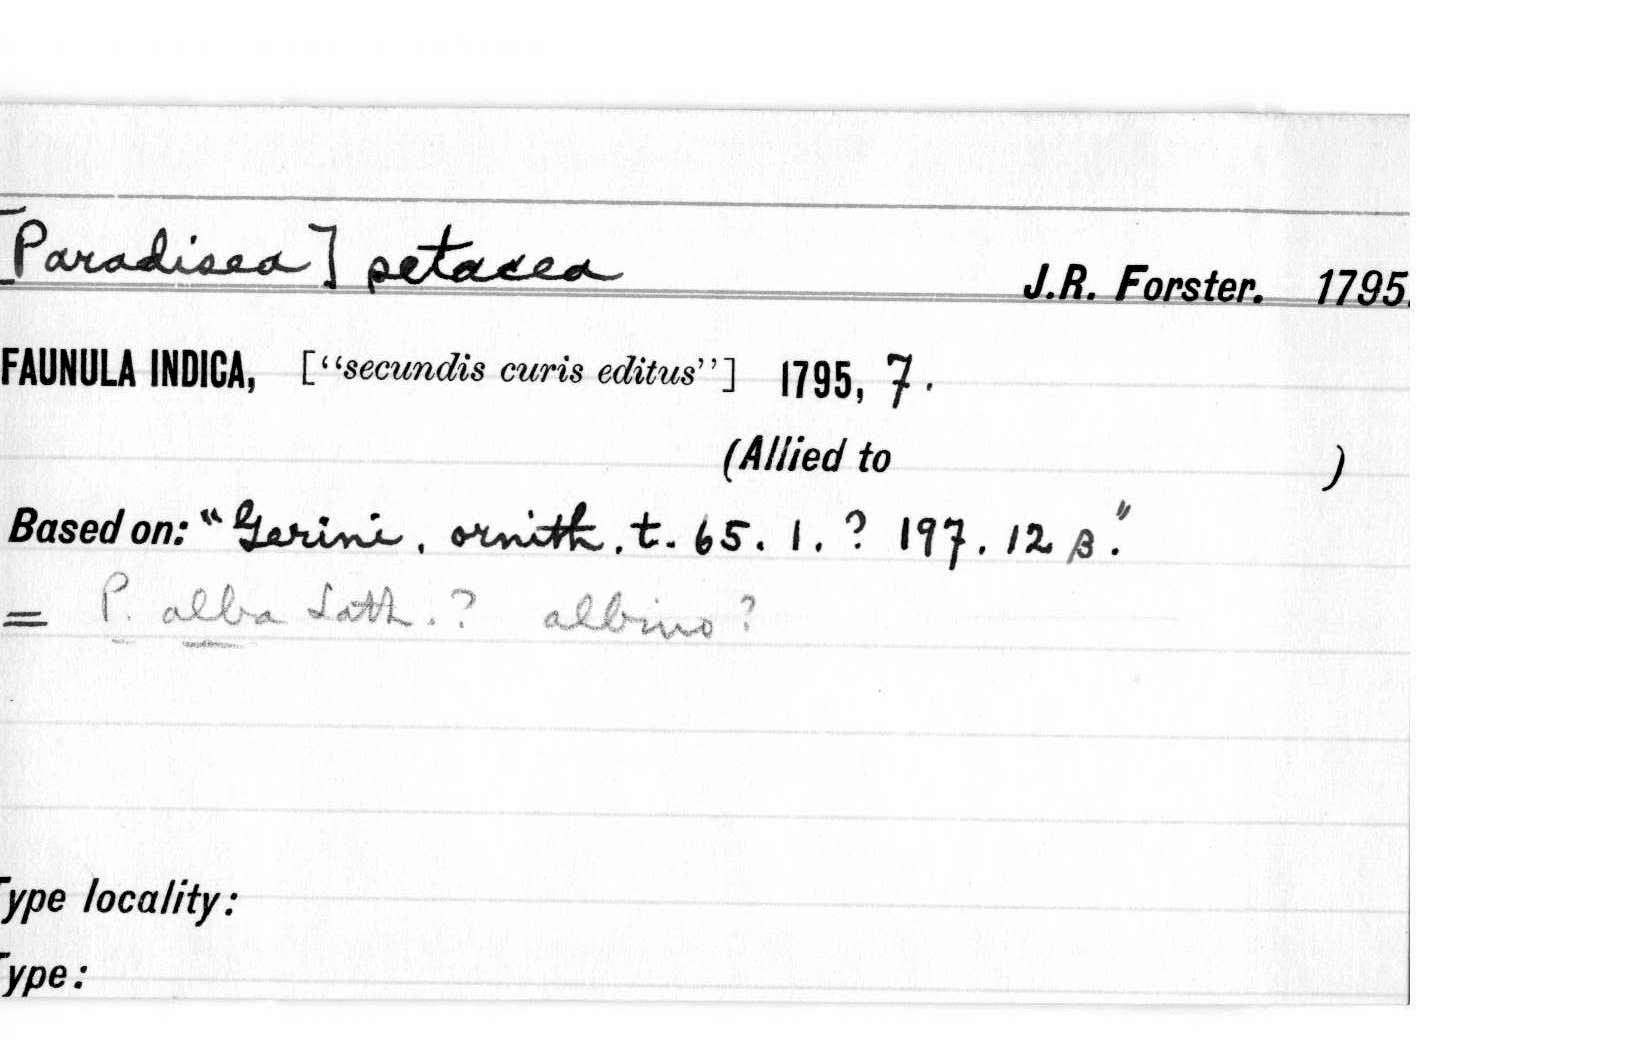 [Paradisea] setacea J.R. Forster. 1795.
FAUNULA INDICA, [“secundis curis editus”] 1795, 7.
(Allied to )
Based on: “Gerini. ornith. t. 65. 1. ? 197. 12 β.”
= P. alba Lath.? albino?
Type locality:
Type: